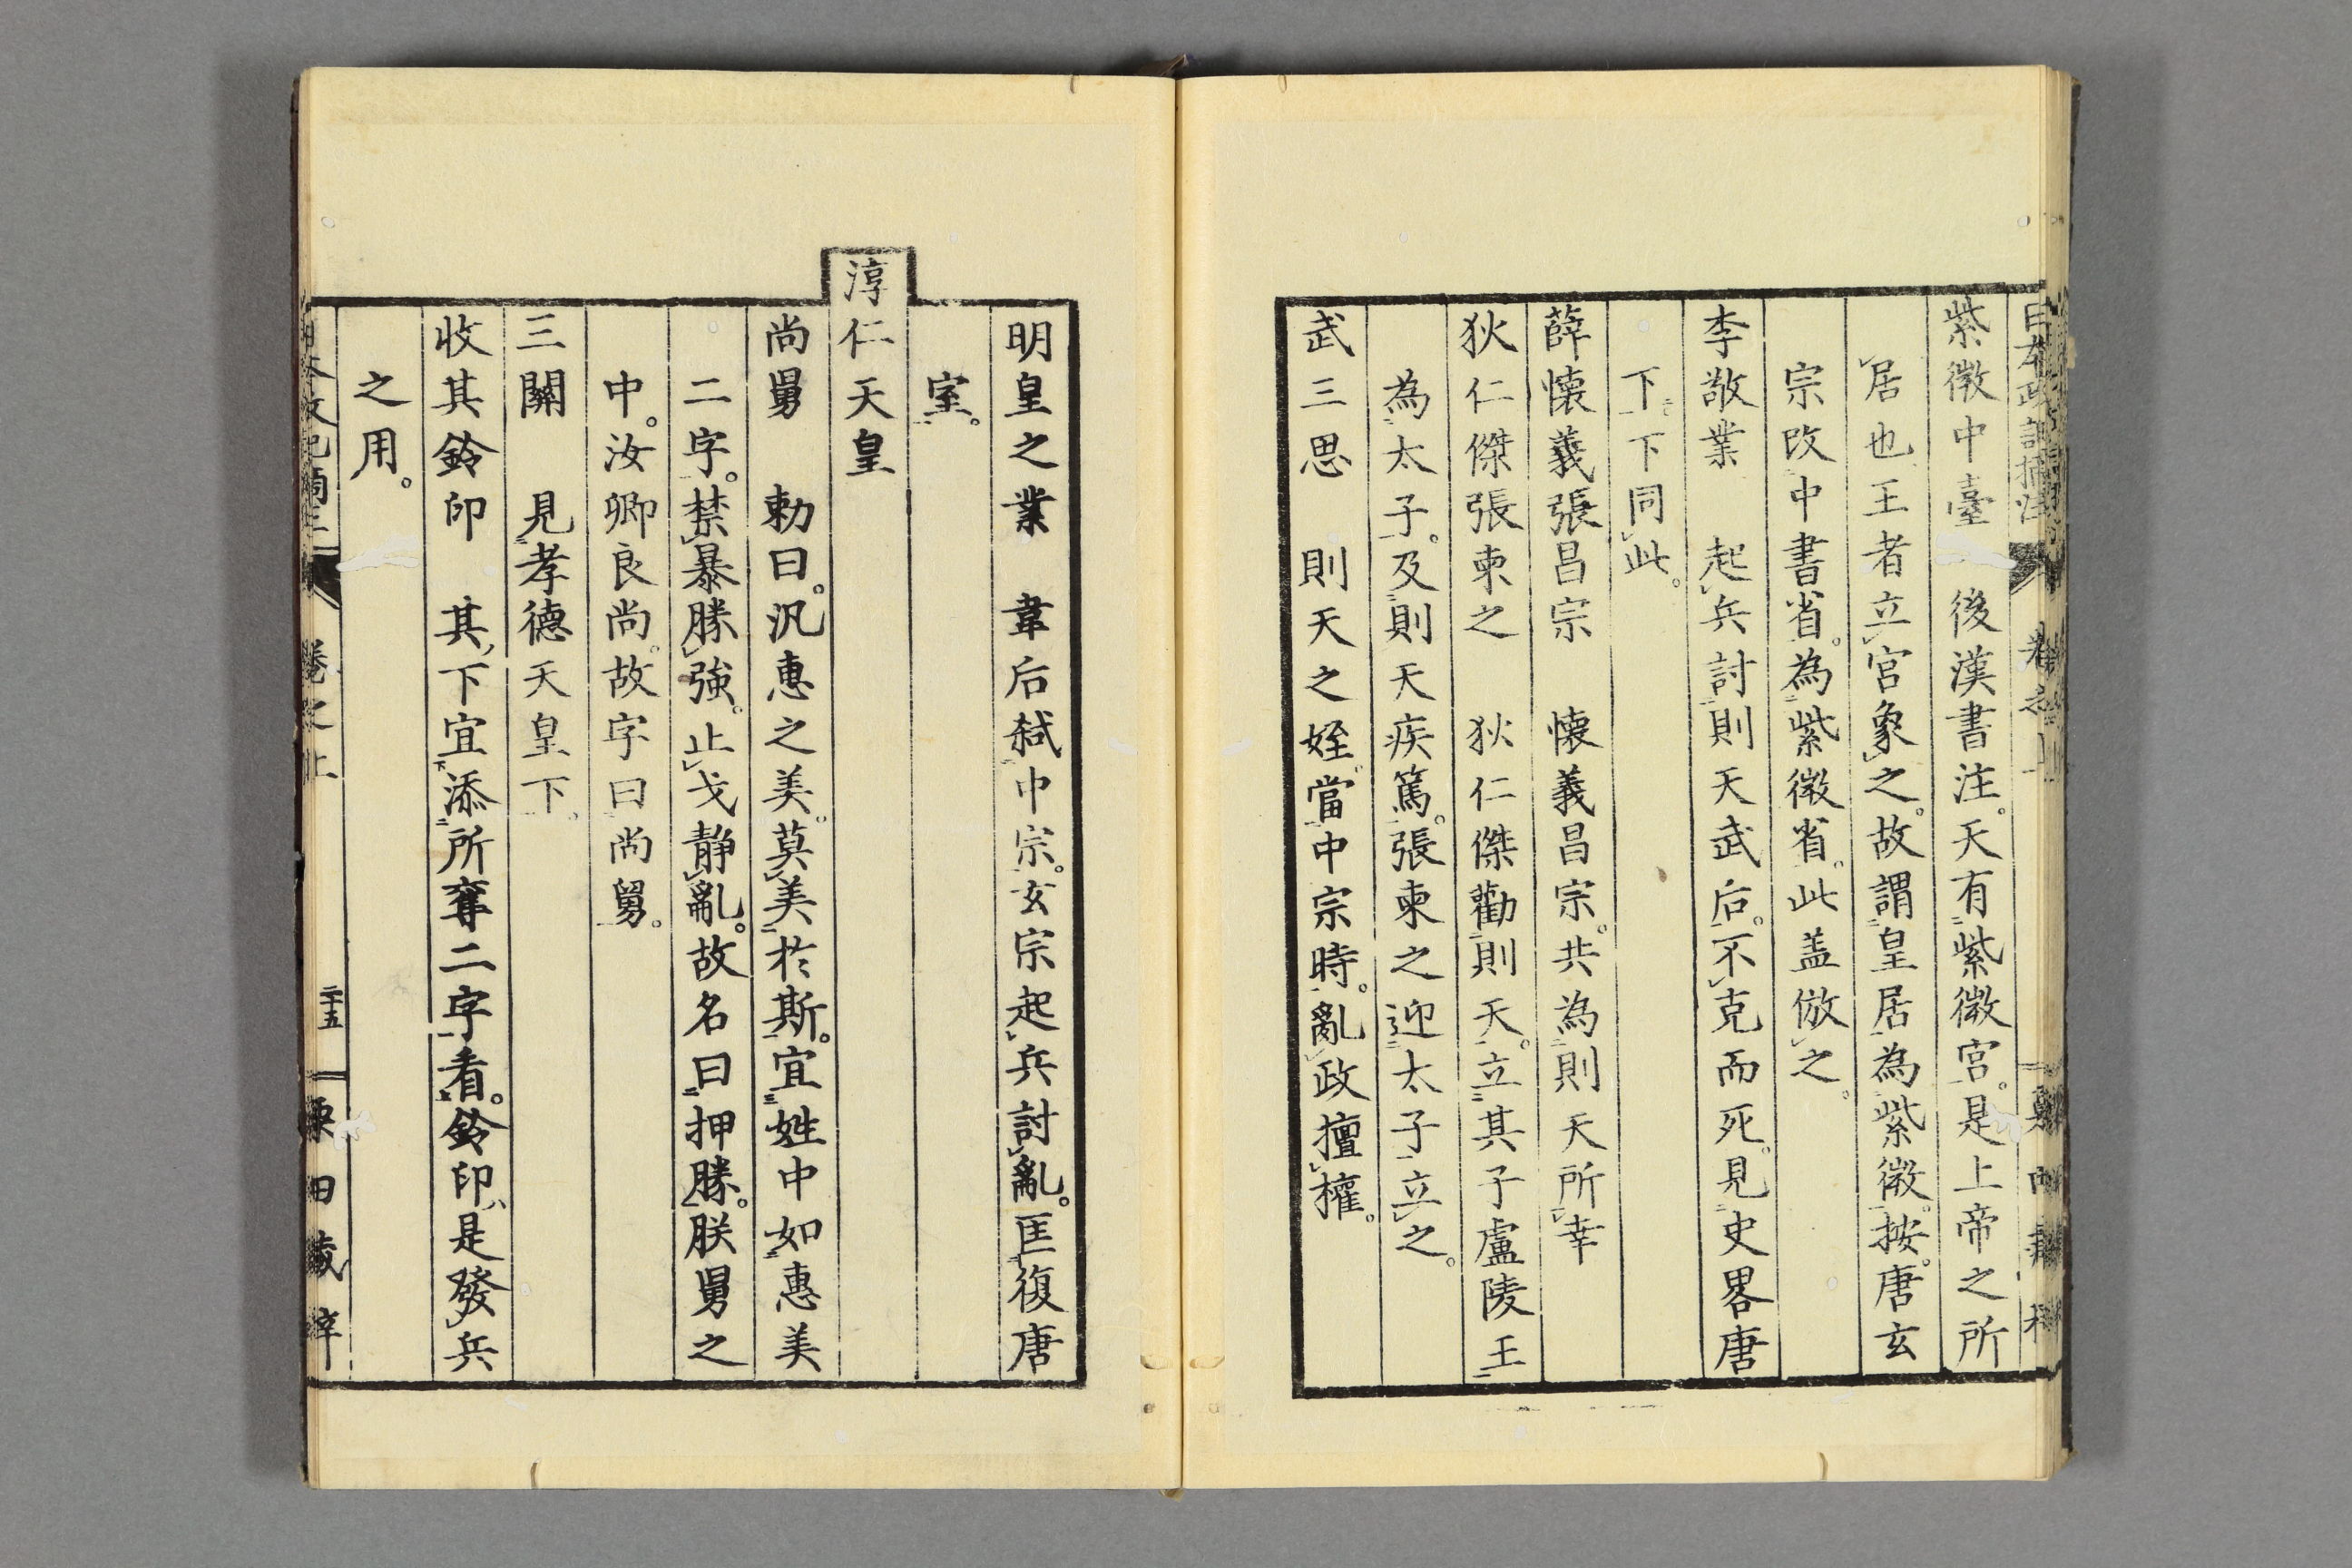 紫微中臺　後漢書注。天有紫微宮。是上帝之所
居也王者立宮象之。故謂皇居為紫微。按。唐玄
宗改中書省。為紫微省。此盖倣之。
李敬業　起兵討則天武后。不克而死。見史畧唐
下。下同此。
薛懷義張昌宗　懷義昌宗。共為則天所幸
狄仁傑張柬之　狄仁傑勸則天。立其子盧陵王
為太子。及則天疾篤。張柬之迎太子立之。
武三思　則天之姪。當中宗時。亂政擅權。
明皇之業　韋后弑中宗。玄宗起兵討亂。匡復唐
室。
淳仁天皇
尚舅　勅曰。汎惠之美。莫美於斯。宜姓中如惠美
二字。禁暴勝強。止戈静亂。故名曰押勝。朕舅之
中。汝卿良尚。故字曰尚舅。
三關　見孝德天皇下。
收其鈴印　其下宜添所奪二字看。鈴印是發兵
之用。
二十五